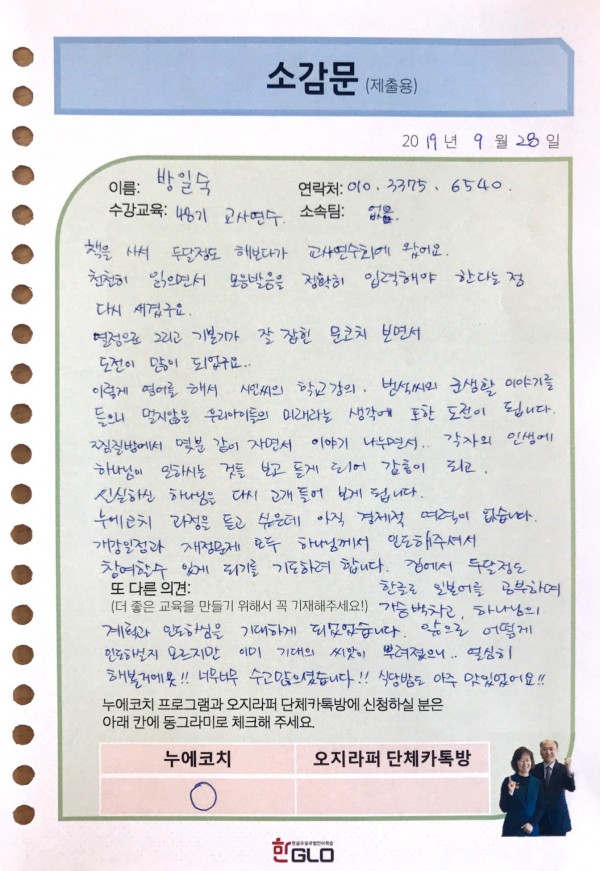 소감문 (제출용)
2019년 9월 28일
이름: 방일숙 연락처: 010. 3375. 6540.
수강교육: 48기 교사연수. 소속팀: 없음.
책을 사서 두달정도 해보다가 교사연수회에 왔어요.
천천히 읽으면서 모음발음을 정확히 입력해야 한다는 점
다시 새겼구요.
열정으로 그리고 기본기가 잘 잡힌 문코치 보면서
도전이 많이 되었구요..
이렇게 영어를 해서 학교강의. 범석씨의 군생활 이야기를
들으니 멀지않은 우리아이들의 미래라는 생각에 또한 도전이 됩니다.
찜질방에서 몇분 같이 자면서 이야기 나누면서.. 각자의 인생에
하나님이 일하시는 것들 보고 듣게 되어 감동이 되고.
신실하신 하나님을 다시 고개 들어 보게 됩니다.
누에코치 과정을 듣고 싶은데 아직 경제적 여력이 없습니다.
개강일정과 재정문제 모두 하나님께서 인도해주셔서
참여할수 있게 되기를 기도하려 합니다. 집에서 두달정도
또 다른 의견: 한글로 일본어를 공부하며
(더 좋은 교육을 만들기 위해서 꼭 기재해주세요!) 가슴벅차고, 하나님의
계획과 인도하심을 기대하게 되었었습니다. 앞으로 어떻게
인도하실지 모르지만 이미 기대의 씨앗이 뿌려졌으니.. 열심히
해볼거예욧!! 너무너무 수고많으셨습니다!! 식당밥도 아주 맛있었어요!!
누에코치 프로그램과 오지라퍼 단체카톡방에 신청하실 분은
아래 칸에 동그라미로 체크해 주세요.
누에코치 오지라퍼 단체카톡방
한GLO